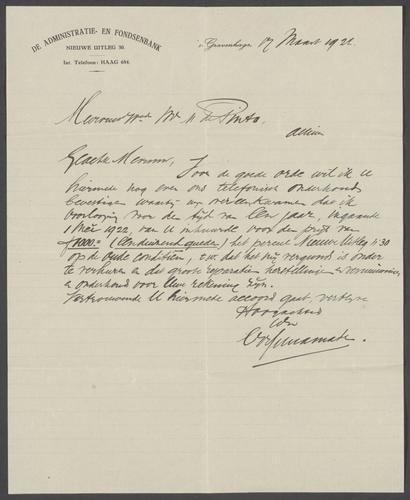 DE ADMINISTRATIE- EN FONDSENBANK
NIEUWE UITLEG 30.
Int. Telefoon: HAAG 684.
's-Gravenhage, 17 Maart 1922.
Mevrouw Wed. de Pinto,
alhier
Geachte Mevrouw,
Voor de goede orde wil ik U
hiermede nog even ons telefonisch onderhoud
bevestigen waarbij wij overeenkwamen dat ik
voorloopig voor den tijd van één jaar, ingaande
1 Mei 1922, van U inhuurde voor den prijs van
f 1000.= (Eenduizend gulden) het perceel Nieuwe Uitleg No 30
op de oude conditiën, t.w. dat het mij vergund is onder
te verhuren en dat groote reparatiën, herstellingen en vernieuwingen
en onderhoud voor Uwe rekening zijn.
Vertrouwende U hiermede accoord gaat, verblijve
Hoogachtend